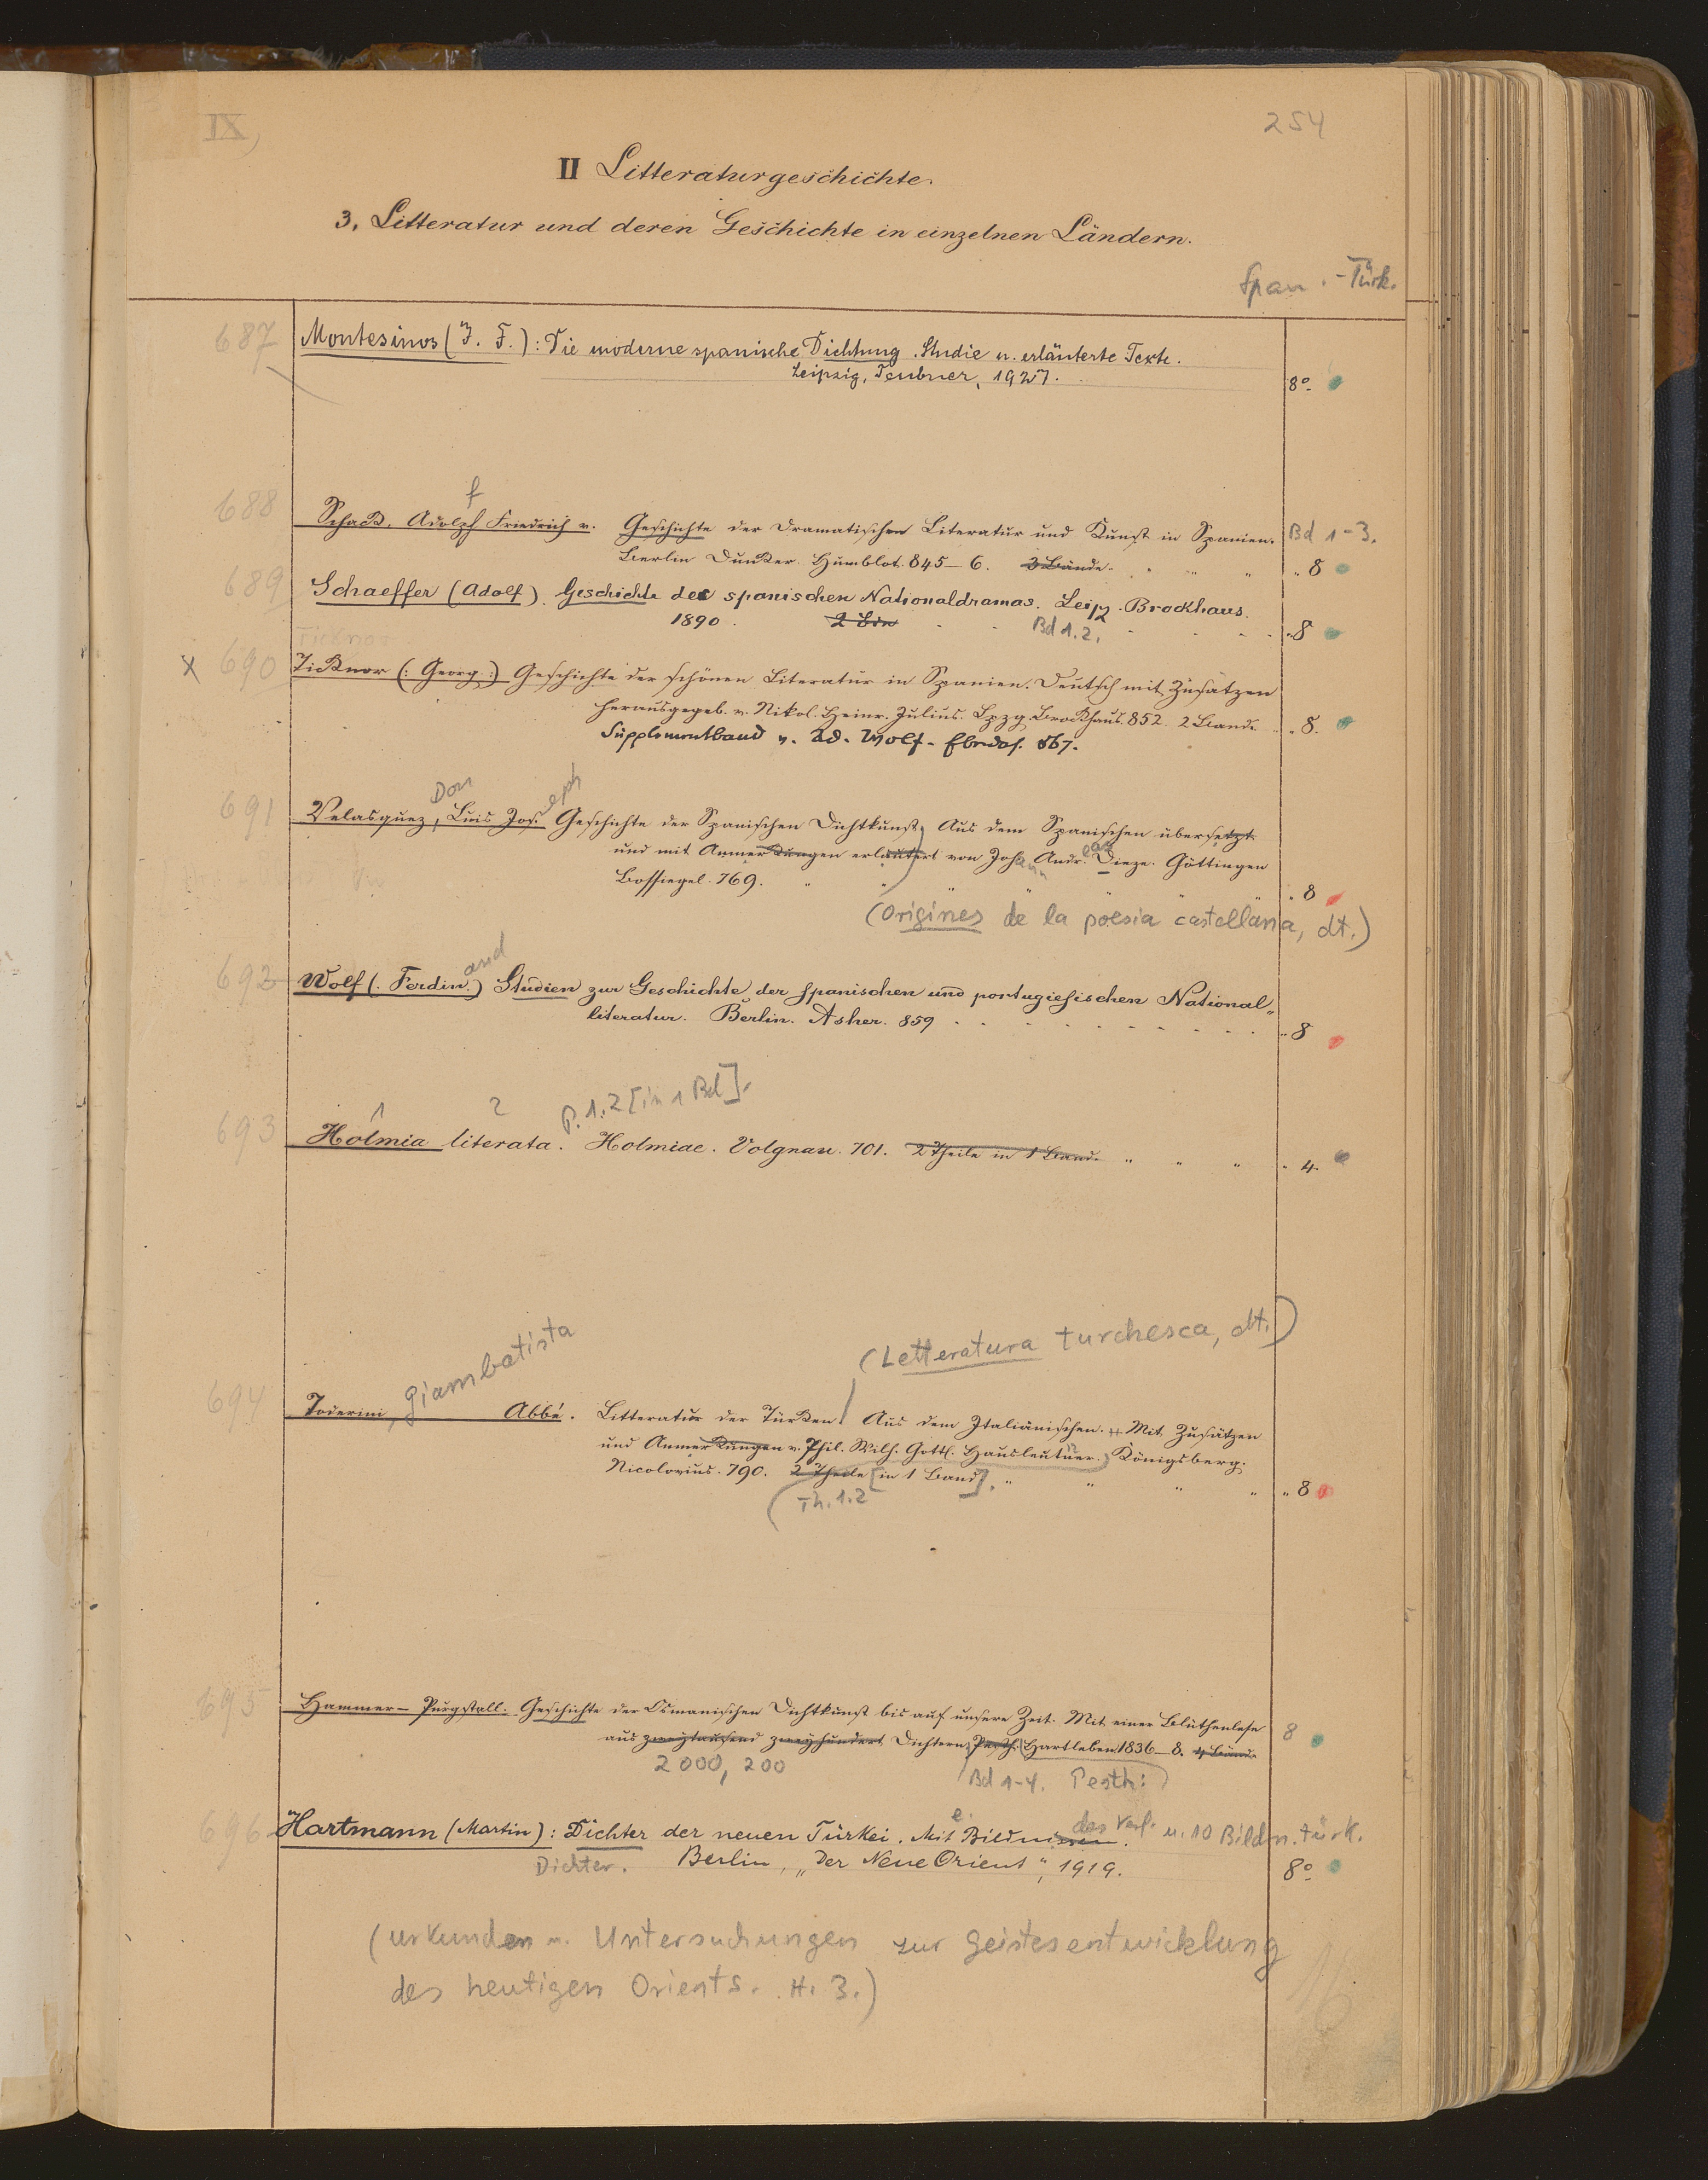 IX,
254
II Litteraturgeschichte.
3. Litteratur und deren Geschichte in einzelnen Ländern.
Span. - Türk.
687 Montesinos (J. F.): Die moderne spanische Dichtung. Studie u. erläuterte Texte.
Leipzig, Teubner, 1927. 8°.
f
688 Schack, Adolph Friedrich v. Geschichte der dramatischen Literatur und Kunst in Spanien. Bd 1-3.
Berlin Dunker. Humblot. 845–6. 3 Bände. " 8
689 Schaeffer (Adolf). Geschichte des spanischen Nationaldramas. Leipz. Brockhaus.
1890. 2 Bde Bd 1.2. " 8
Ticknor
x 690 Ticknor (: Georg :) Geschichte der schönen Literatur in Spanien. Deutsch mit Zusätzen
herausgegeb. v. Nikol. Heinr. Julius. Lpzg. Brockhaus. 852 2 Bände. " 8.
Supplementband v. Ad. Wolf. Ebendas. 867.
Don eph
691 Velasquez, Luis Jos. Geschichte der Spanischen Dichtkunst, Aus dem Spanischen übersetzt
und mit Anmerkungen erläutert von Johann Andreas Dieze. Göttingen
Bossiegel. 769. " 8
(Origines de la poesia castellana, dt.)
and
692 Wolf (. Ferdin.) Studien zur Geschichte der spanischen und portugiesischen National-
literatur. Berlin. Asher. 859 " 8
1 2 P. 1.2 [in 1 Bd].
693 Holmia literata. Holmiae. Volgnau. 701. 2 Theile in 1 Band. " " " " 4.
(Letteratura turchesca, dt.)
Giambatista
694 Toderini, Abbé. Litteratur der Türken. Aus dem Italiänischen. Mit Zusätzen
und Anmerkungen v. Phil. Wilh. Gottl. Hausleutner. Königsberg.
Nicolovius. 790. 2 Theile [in 1 Band]. " " " " " 8
Th. 1.2
695 Hammer-Purgstall. Geschichte der Osmanischen Dichtkunst bis auf unsere Zeit. Mit einer Blüthenlese 8
aus zweytausend zweyhundert Dichtern, Pesth. Hartleben 1836–8. 4 Bände
2000, 200 Bd 1-4. Pesth:
e. des Verf. u. 10 Bildn. türk.
696 Hartmann (Martin): Dichter der neuen Türkei. Mit Bildnissen.
Dichter. Berlin, „Der Neue Orient“, 1919. 8°.
(Urkunden u. Untersuchungen zur Geistesentwicklung
des heutigen Orients. H. 3.)
16